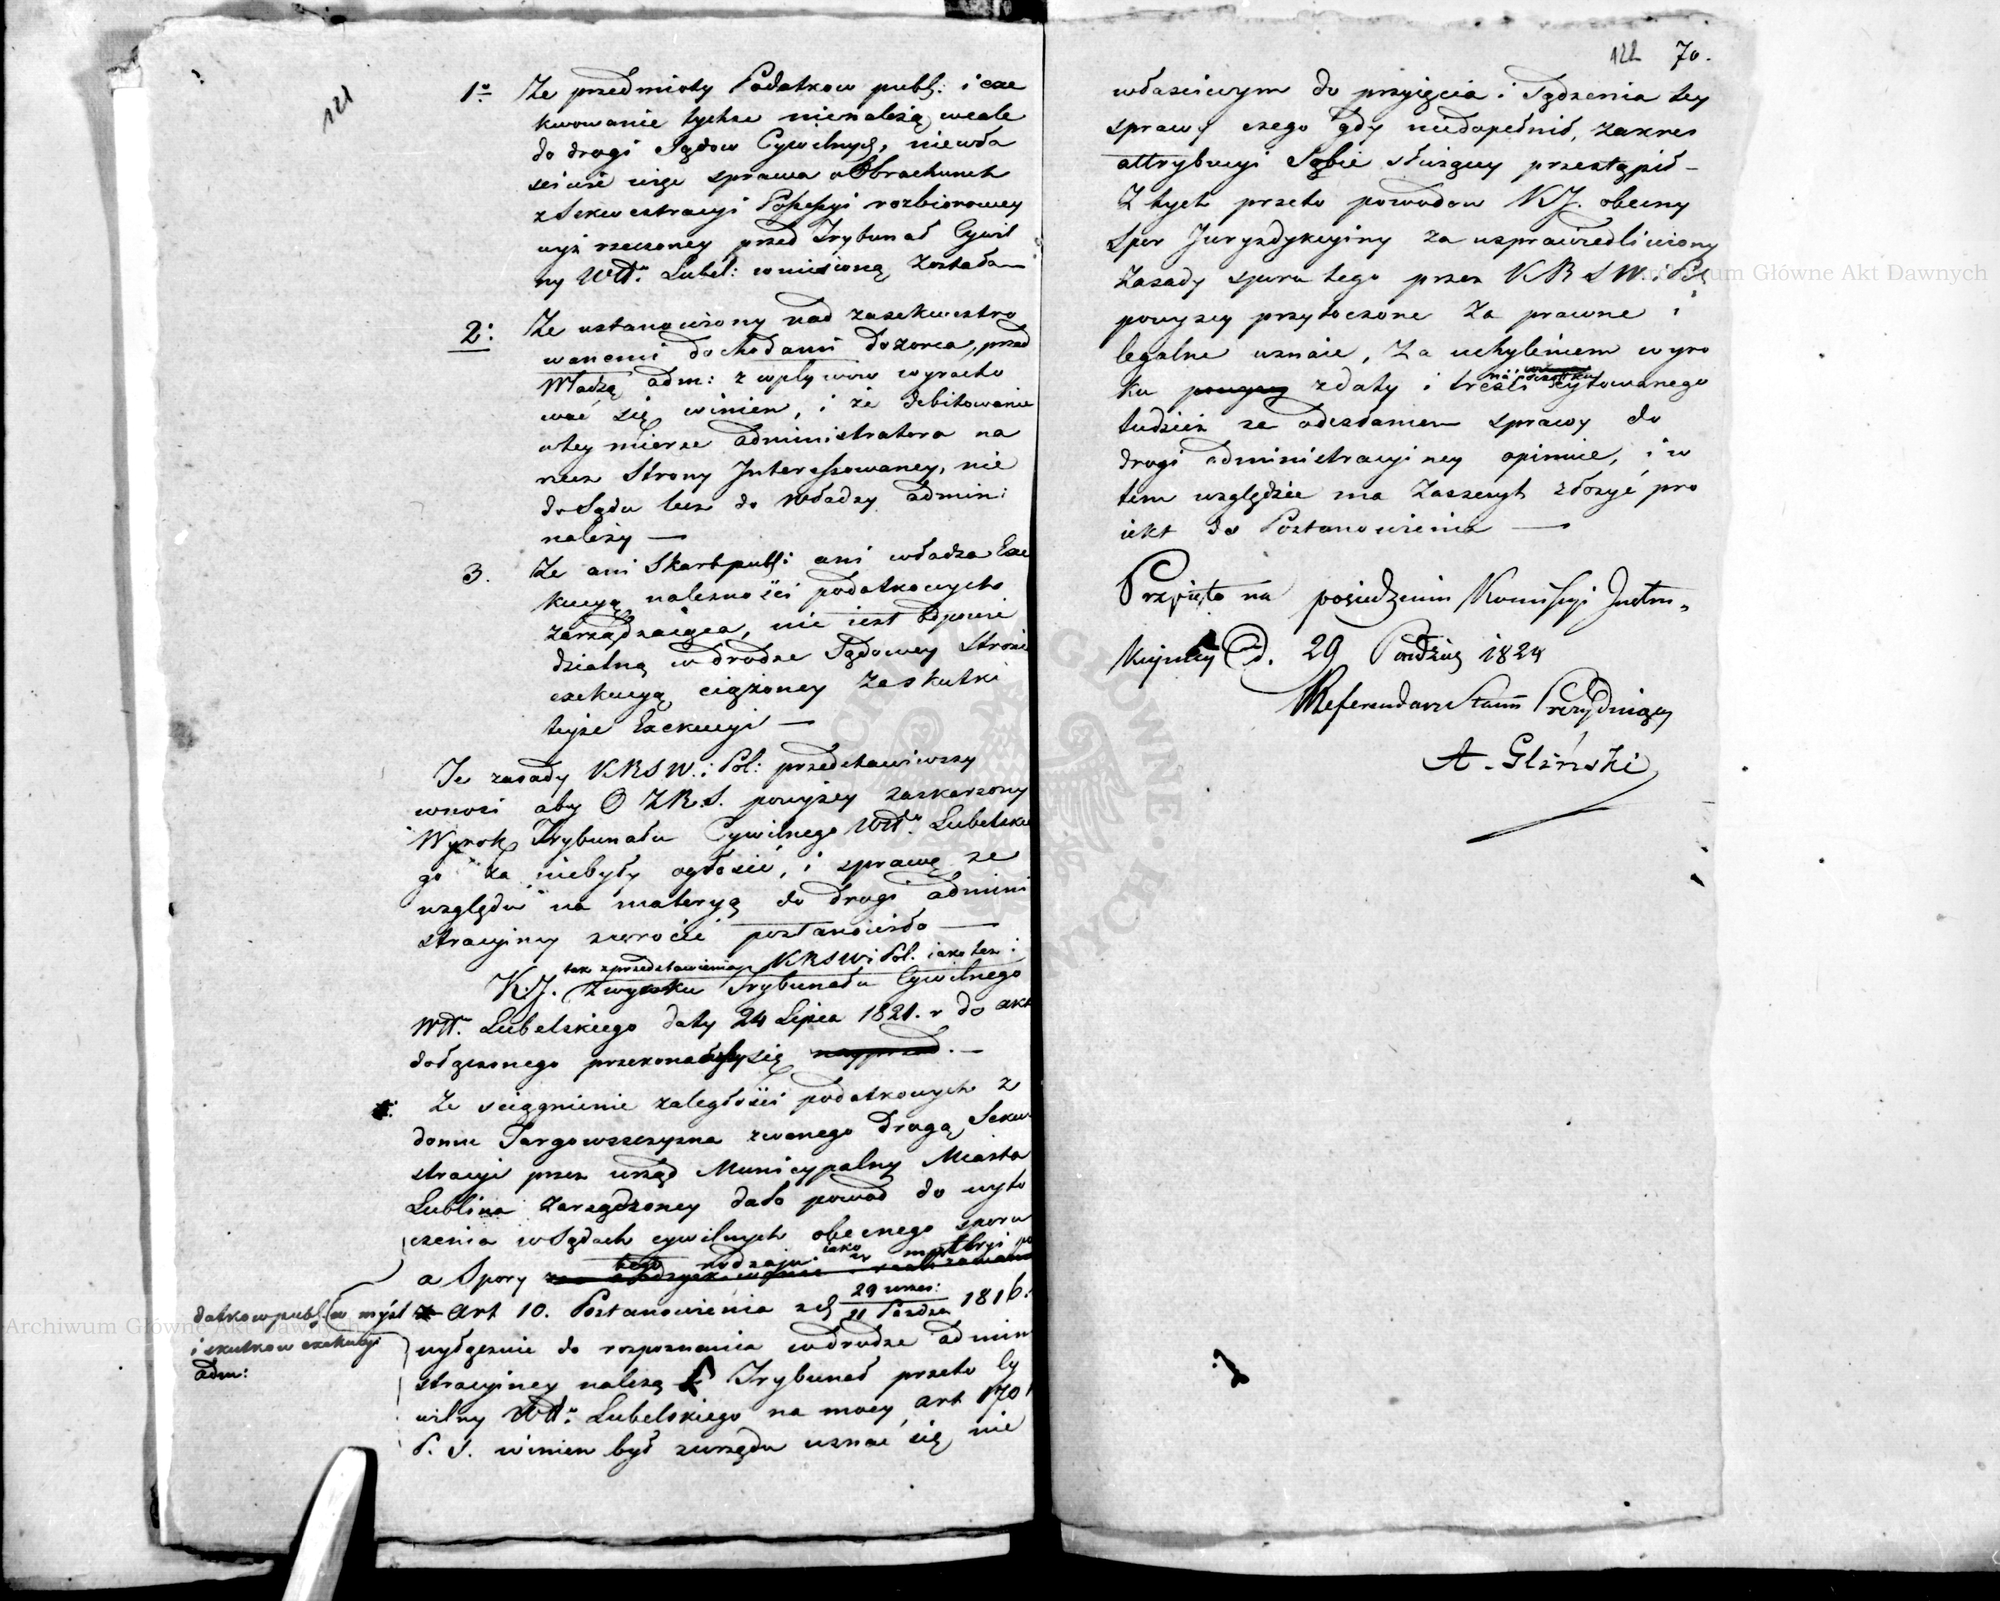 121
1o Ze przedmioty Podatkow publ: i exe
kwowanie tychże nienależą wcale
do drogi Sądow Cywilnych, niewła
ściwie więc sprawa o Obrachunek
z Sekwestracyi Possessyi rozbiorowey
wyż rzeczoney przed Trybunał Cywil
ny Wdt. Lubel: wniesioną została
2: Ze ustanowiony nad zasekwestro
wanemi dochodami dozorca, przed
Władzą adm: z wpływow wyracho
wać się winien, i że debitowanie
wtey mierze administratora na
rzecz Strony Interessowaney, nie
do Sądu lecz do Władzy admin:
należy —
3. Ze ani Skarb publ: ani władza Exe
kucyą należności podatkowych
zarządzaiąca, nie iest odpowie
dzialną w drodze Sądowey Stronie
exekucyą ciążoney za skutki
teyże Exekucyi —
Te zasady KRSW. i Pol: przedstawiwszy
wnosi aby O ZR.S. powyżey zaskarżony
Wyrok Trybunału Cywilnego Wdt. Lubelskie
go za niebyły ogłosić, i sprawę ze
względu na materyą do drogi admini
stracyiney zwrócić postanowiła —
tak z przedstawienia KRSW i Pol. iako też i
K.J. z wyroku Trybunału Cywilnego
Wdt. Lubelskiego daty 24 Lipca 1821. r do akt
dołączonego przekonały się nayprzod. —
Ze ściągnienie zaległości podatkowych z
domu Targowszczyzna zwanego drogą Sekw
stracyi przez urząd Municypalny Miasta
Lublina zarządzoney dało powod do wyto
czenia w Sądach cywilnych obecnego sporu
a Spory tego rodzaju iako w materyi po
datkow publ. w myśl art 10. Postanowienia z d 29 wrześ: / 11 Paźdz 1816.
i skutkow exekucyi
adm:
wyłącznie do rozpoznania w drodze admin
stracyiney należą Trybunał przeto Cy
wilny Wdt. Lubelskiego na mocy art 170
P. S. winien był z urzędu uznać się nie
122 70.
właściwym do przyięcia i Sądzenia tey
sprawy czego gdy niedopełnił, zakres
attrybucyi Sobie służący przestąpił —
Z tych przeto powodow K.J. obecny
Spor Juryzdykcyiny za usprawiedliwiony
zasady sporu tego przez KRSW. i Pol
powyżey przytoczone za prawne i
legalne uznaie, za uchyleniem wyro
ku powyżey z daty i treści na początku cytowanego
tudzież za odesłaniem sprawy do
drogi administracyiney opiniuie, i w
tem względzie ma zaszczyt złożyć pro
iekt do Postanowienia —
Przyięto na posiedzeniu Komissyi Instru
kcyiney d. 29 Paździer 1824
Referendarz Stanu Prezyduiący
A. Gliński
Archiwum Główne Akt Dawnych
Archiwum Główne Akt Dawnych